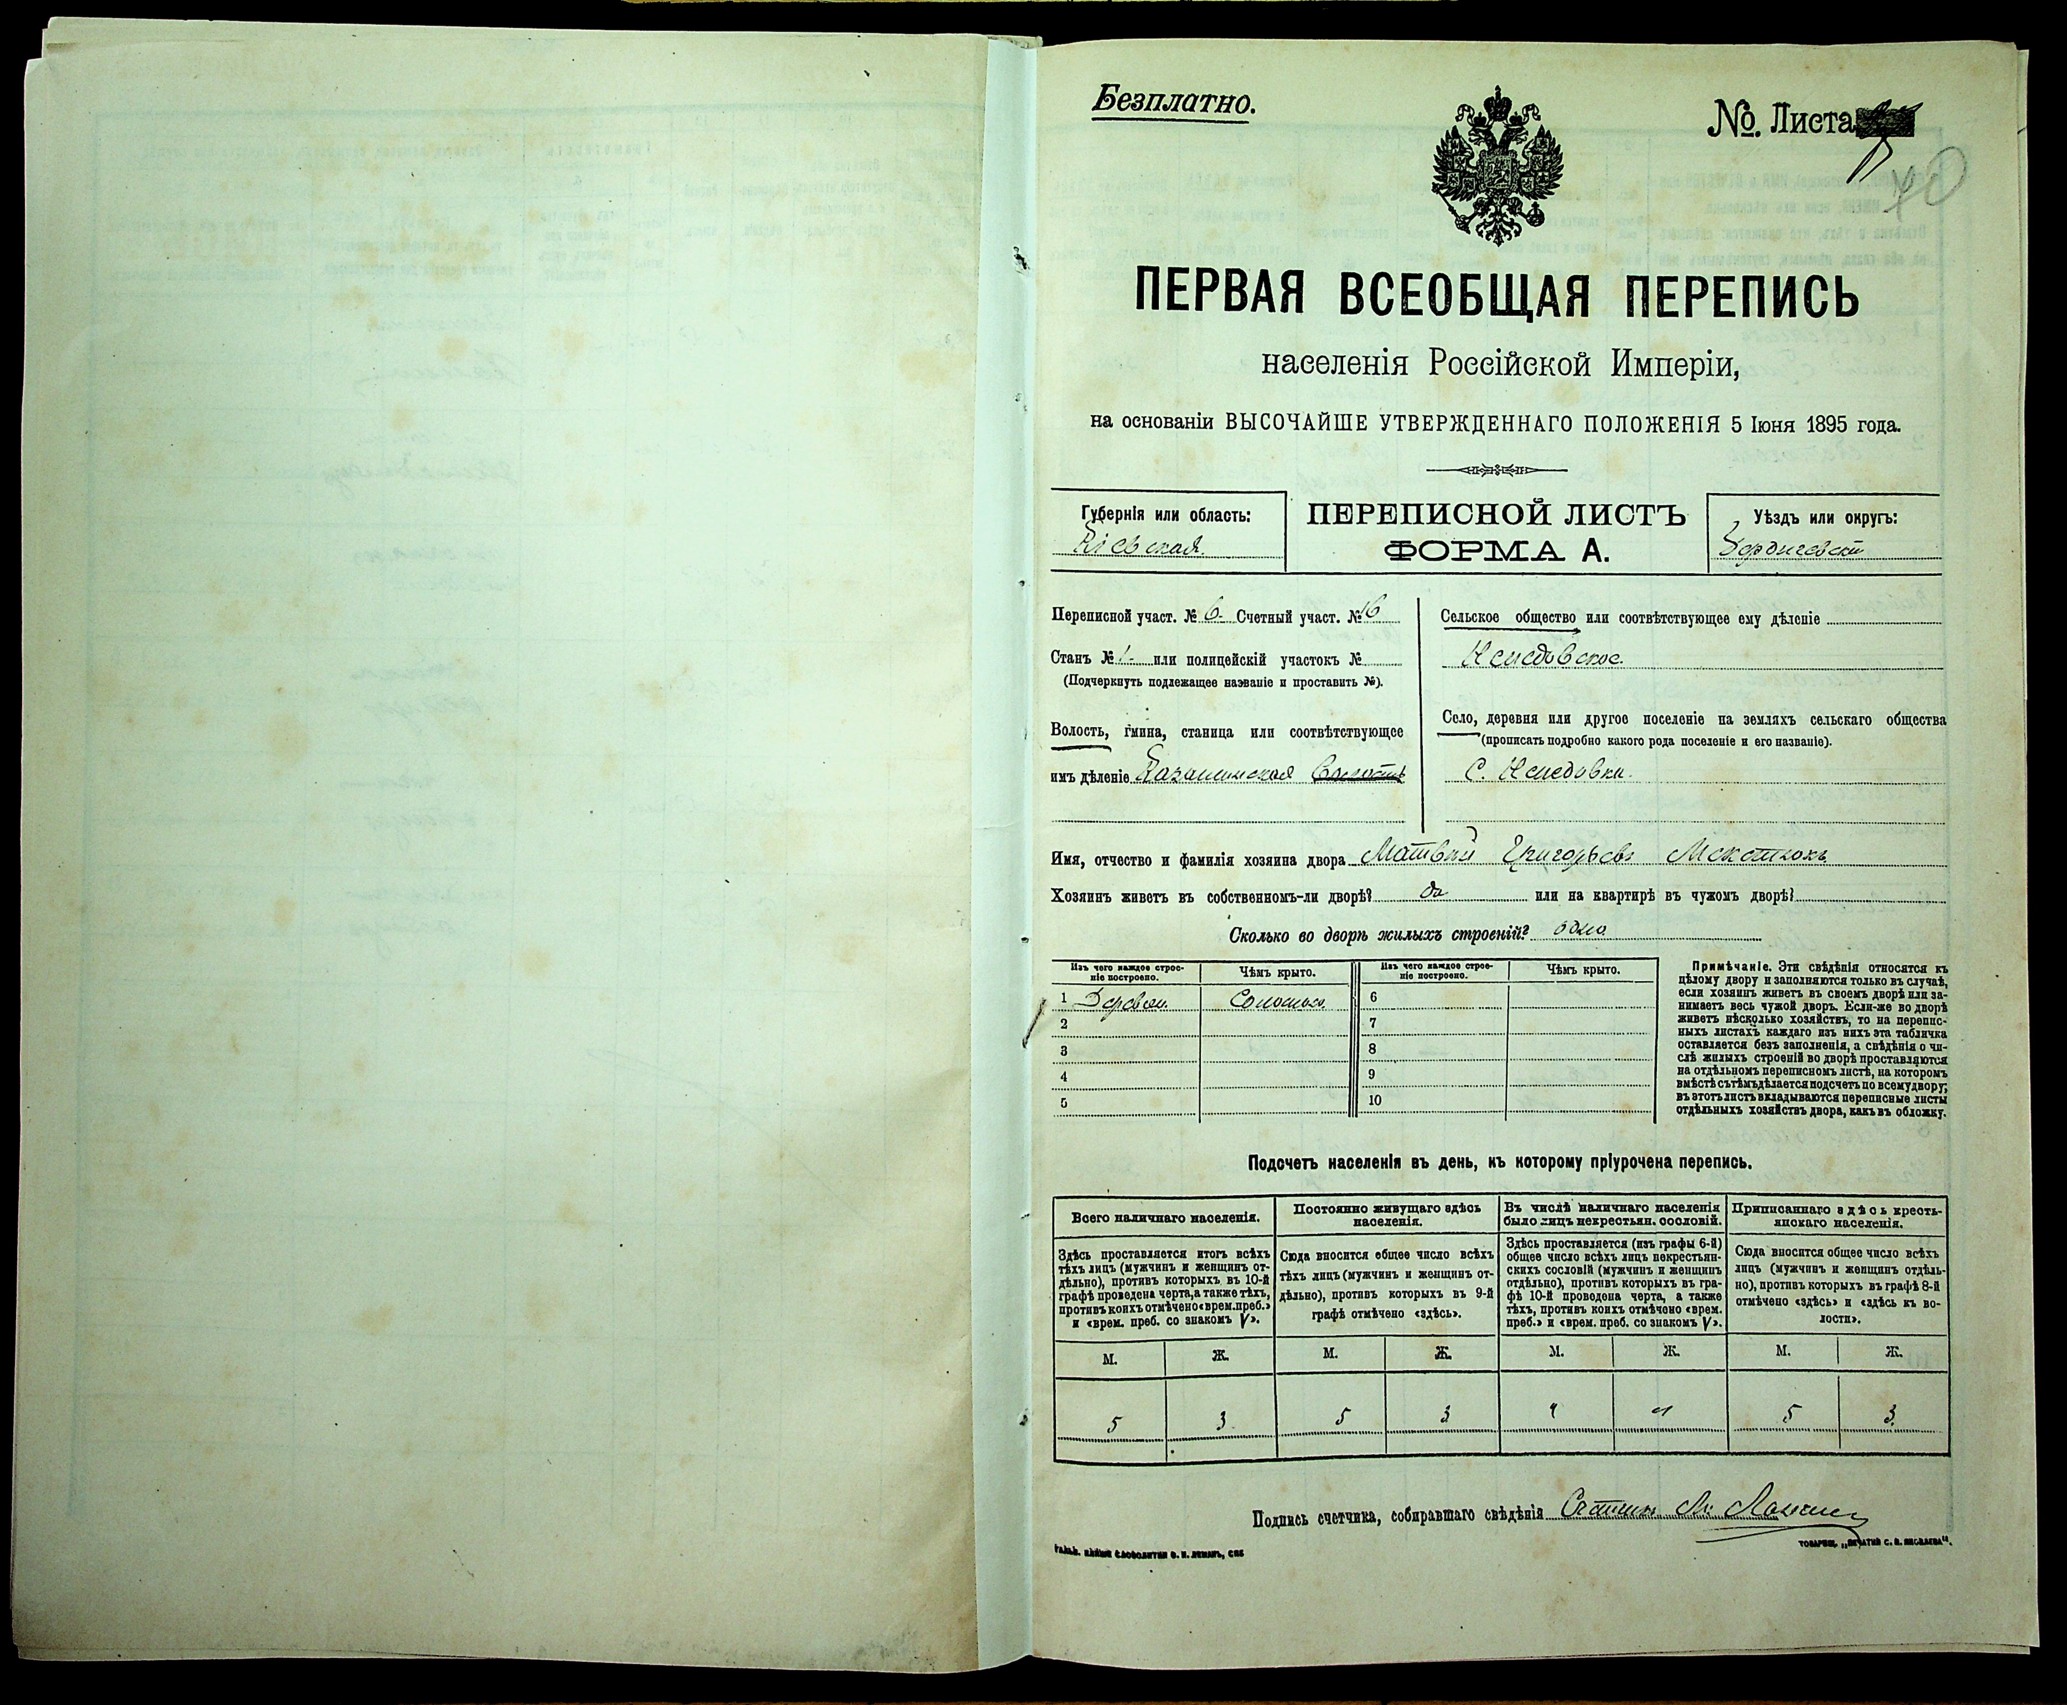 Безплатно.
№ Листа
40
ПЕРВАЯ ВСЕОБЩАЯ ПЕРЕПИСЬ
населенія Россійской Имперіи,
на основаніи ВЫСОЧАЙШЕ УТВЕРЖДЕННАГО ПОЛОЖЕНІЯ 5 Іюня 1895 года.
Губернія или область:
Кіевская
ПЕРЕПИСНОЙ ЛИСТЪ
ФОРМА А.
Уѣздъ или округъ:
Бердичевскій
Переписной участ. № 6. Счетный участ. № 16
Станъ № 1 или полицейскій участокъ №
(Подчеркнуть подлежащее названіе и проставить №).
Волость, гмина, станица или соотвѣтствующее
имъ дѣленіе Казатинская волость
Сельское общество или соотвѣтствующее ему дѣленіе
Село, деревня или другое поселеніе на земляхъ сельскаго общества
(прописать подробно какого рода поселеніе и его названіе).
С.
Имя, отчество и фамилія хозяина двора Матвѣй Григорьевъ
Хозяинъ живетъ въ собственномъ-ли дворѣ? да или на квартирѣ въ чужомъ дворѣ?
Сколько во дворѣ жилыхъ строеній? одно
Изъ чего каждое строе-
ніе построено.
Чѣмъ крыто.
Изъ чего каждое строе-
ніе построено.
Чѣмъ крыто.
1 Дерева. Соломою 6
2 7
3 8
4 9
5 10
Примѣчаніе. Эти свѣдѣнія относятся къ
цѣлому двору и заполняются только въ случаѣ,
если хозяинъ живетъ въ своемъ дворѣ или за-
нимаетъ весь чужой дворъ. Если-же во дворѣ
живетъ нѣсколько хозяйствъ, то на перепис-
ныхъ листахъ каждаго изъ нихъ эта табличка
оставляется безъ заполненія, а свѣдѣнія о чи-
слѣ жилыхъ строеній во дворѣ проставляются
на отдѣльномъ переписномъ листѣ, на которомъ
вмѣстѣ съ тѣмъ дѣлается подсчетъ по всему двору;
въ этотъ листъ вкладываются переписные листы
отдѣльныхъ хозяйствъ двора, какъ въ обложку.
Подсчетъ населенія въ день, къ которому пріурочена перепись.
Всего наличнаго населенія.
Здѣсь проставляется итогъ всѣхъ
тѣхъ лицъ (мужчинъ и женщинъ от-
дѣльно), противъ которыхъ въ 10-й
графѣ проведена черта, а также тѣхъ,
противъ коихъ отмѣчено «врем. преб.»
и «врем. преб. со знакомъ V».
Постоянно живущаго здѣсь
населенія.
Сюда вносится общее число всѣхъ
тѣхъ лицъ (мужчинъ и женщинъ от-
дѣльно), противъ которыхъ въ 9-й
графѣ отмѣчено «здѣсь».
Въ числѣ наличнаго населенія
было лицъ некрестьян. сословій.
Здѣсь проставляется (изъ графы 6-й)
общее число всѣхъ лицъ некрестьян-
скихъ сословій (мужчинъ и женщинъ
отдѣльно), противъ которыхъ въ гра-
фѣ 10-й проведена черта, а также
тѣхъ, противъ коихъ отмѣчено «врем.
преб.» и «врем. преб. со знакомъ V».
Приписаннаго здѣсь кресть-
янскаго населенія.
Сюда вносится общее число всѣхъ
лицъ (мужчинъ и женщинъ отдѣль-
но), противъ которыхъ въ графѣ 8-й
отмѣчено «здѣсь» и «здѣсь къ во-
лости».
М. Ж. М. Ж. М. Ж. М. Ж.
5 3 5 3 " " 5 3
Подпись счетчика, собиравшаго свѣдѣнія